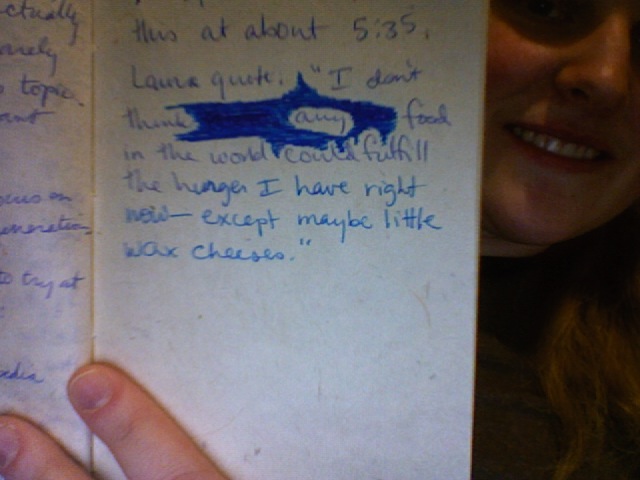 ctually
this at about 5:35.
Laura quote: "I don't
topic.
think any food
in the world could fulfill
the hunger I have right
now— except maybe little
wax cheeses."
to try at